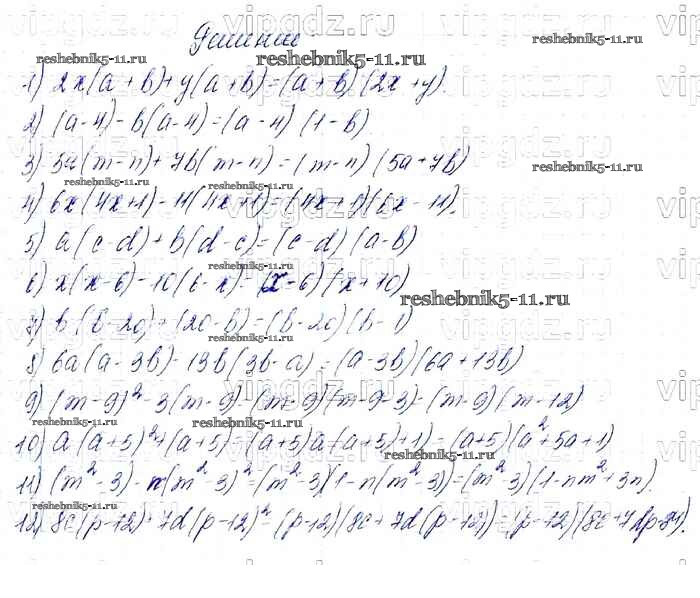 Решение
1) 2x(a+b)+y(a+b)=(a+b)(2x+y)
2) (a-4)-b(a-4)=(a-4)(1-b)
3) 5a(m-n)+7b(m-n)=(m-n)(5a+7b)
4) 6x(4x+1)-11(4x+1)=(4x+1)(6x-11).
5) a(c-d)+b(d-c)=(c-d)(a-b)
6) x(x-6)-10(6-x)=(x-6)(x+10)
7) b(b-20)+(20-b)=(b-20)(b-1)
8) 6a(a-3b)-13b(3b-a)=(a-3b)(6a+13b)
9) (m-9)²-3(m-9)=(m-9)(m-9-3)=(m-9)(m-12)
10) a(a+5)²+(a+5)=(a+5)(a(a+5)+1)=(a+5)(a²+5a+1)
11) (m²-3)-n(m²-3)²=(m²-3)(1-n(m²-3))=(m²-3)(1-nm²+3n).
12) 8c(p-12)+7d(p-12)²=(p-12)(8c+7d(p-12))=(p-12)(8c+7dp-84).